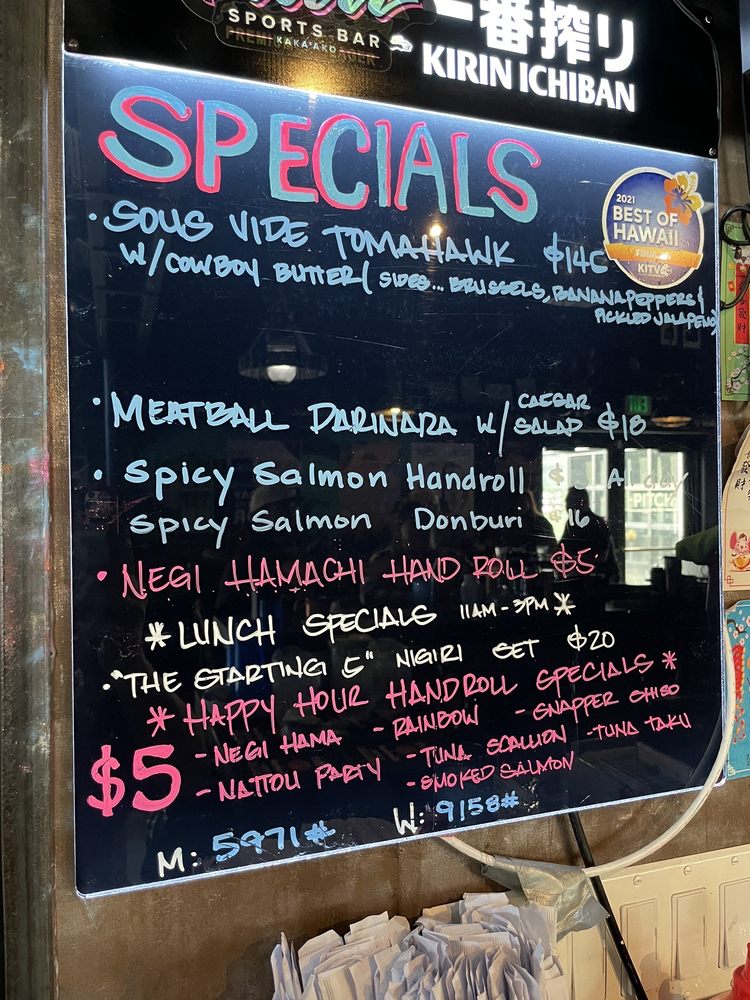 SPORTS BAR
KAKA'AKO
一番搾り
KIRIN ICHIBAN
SPECIALS
2021
BEST OF
HAWAII
KITV4
• SOUS VIDE TOMAHAWK $140
W/COWBOY BUTTER ( SIDES... BRUSSELS, BANANA PEPPERS &
PICKLED JALAPENO)
• MEATBALL DARINARA W/ CAESAR SALAD $18
• Spicy Salmon Handroll
Spicy Salmon Donburi $16
• NEGI HAMACHI HAND ROLL $5
* LUNCH SPECIALS 11AM-3PM *
• "THE STARTING 5" NIGIRI SET $20
* HAPPY HOUR HANDROLL SPECIALS *
$5
- NEGI HAMA - RAINBOW - SNAPPER SHISO
- NATTOU PARTY - TUNA SCALLION - TUNA TAKU
- SMOKED SALMON
M: 5971# W: 9158#